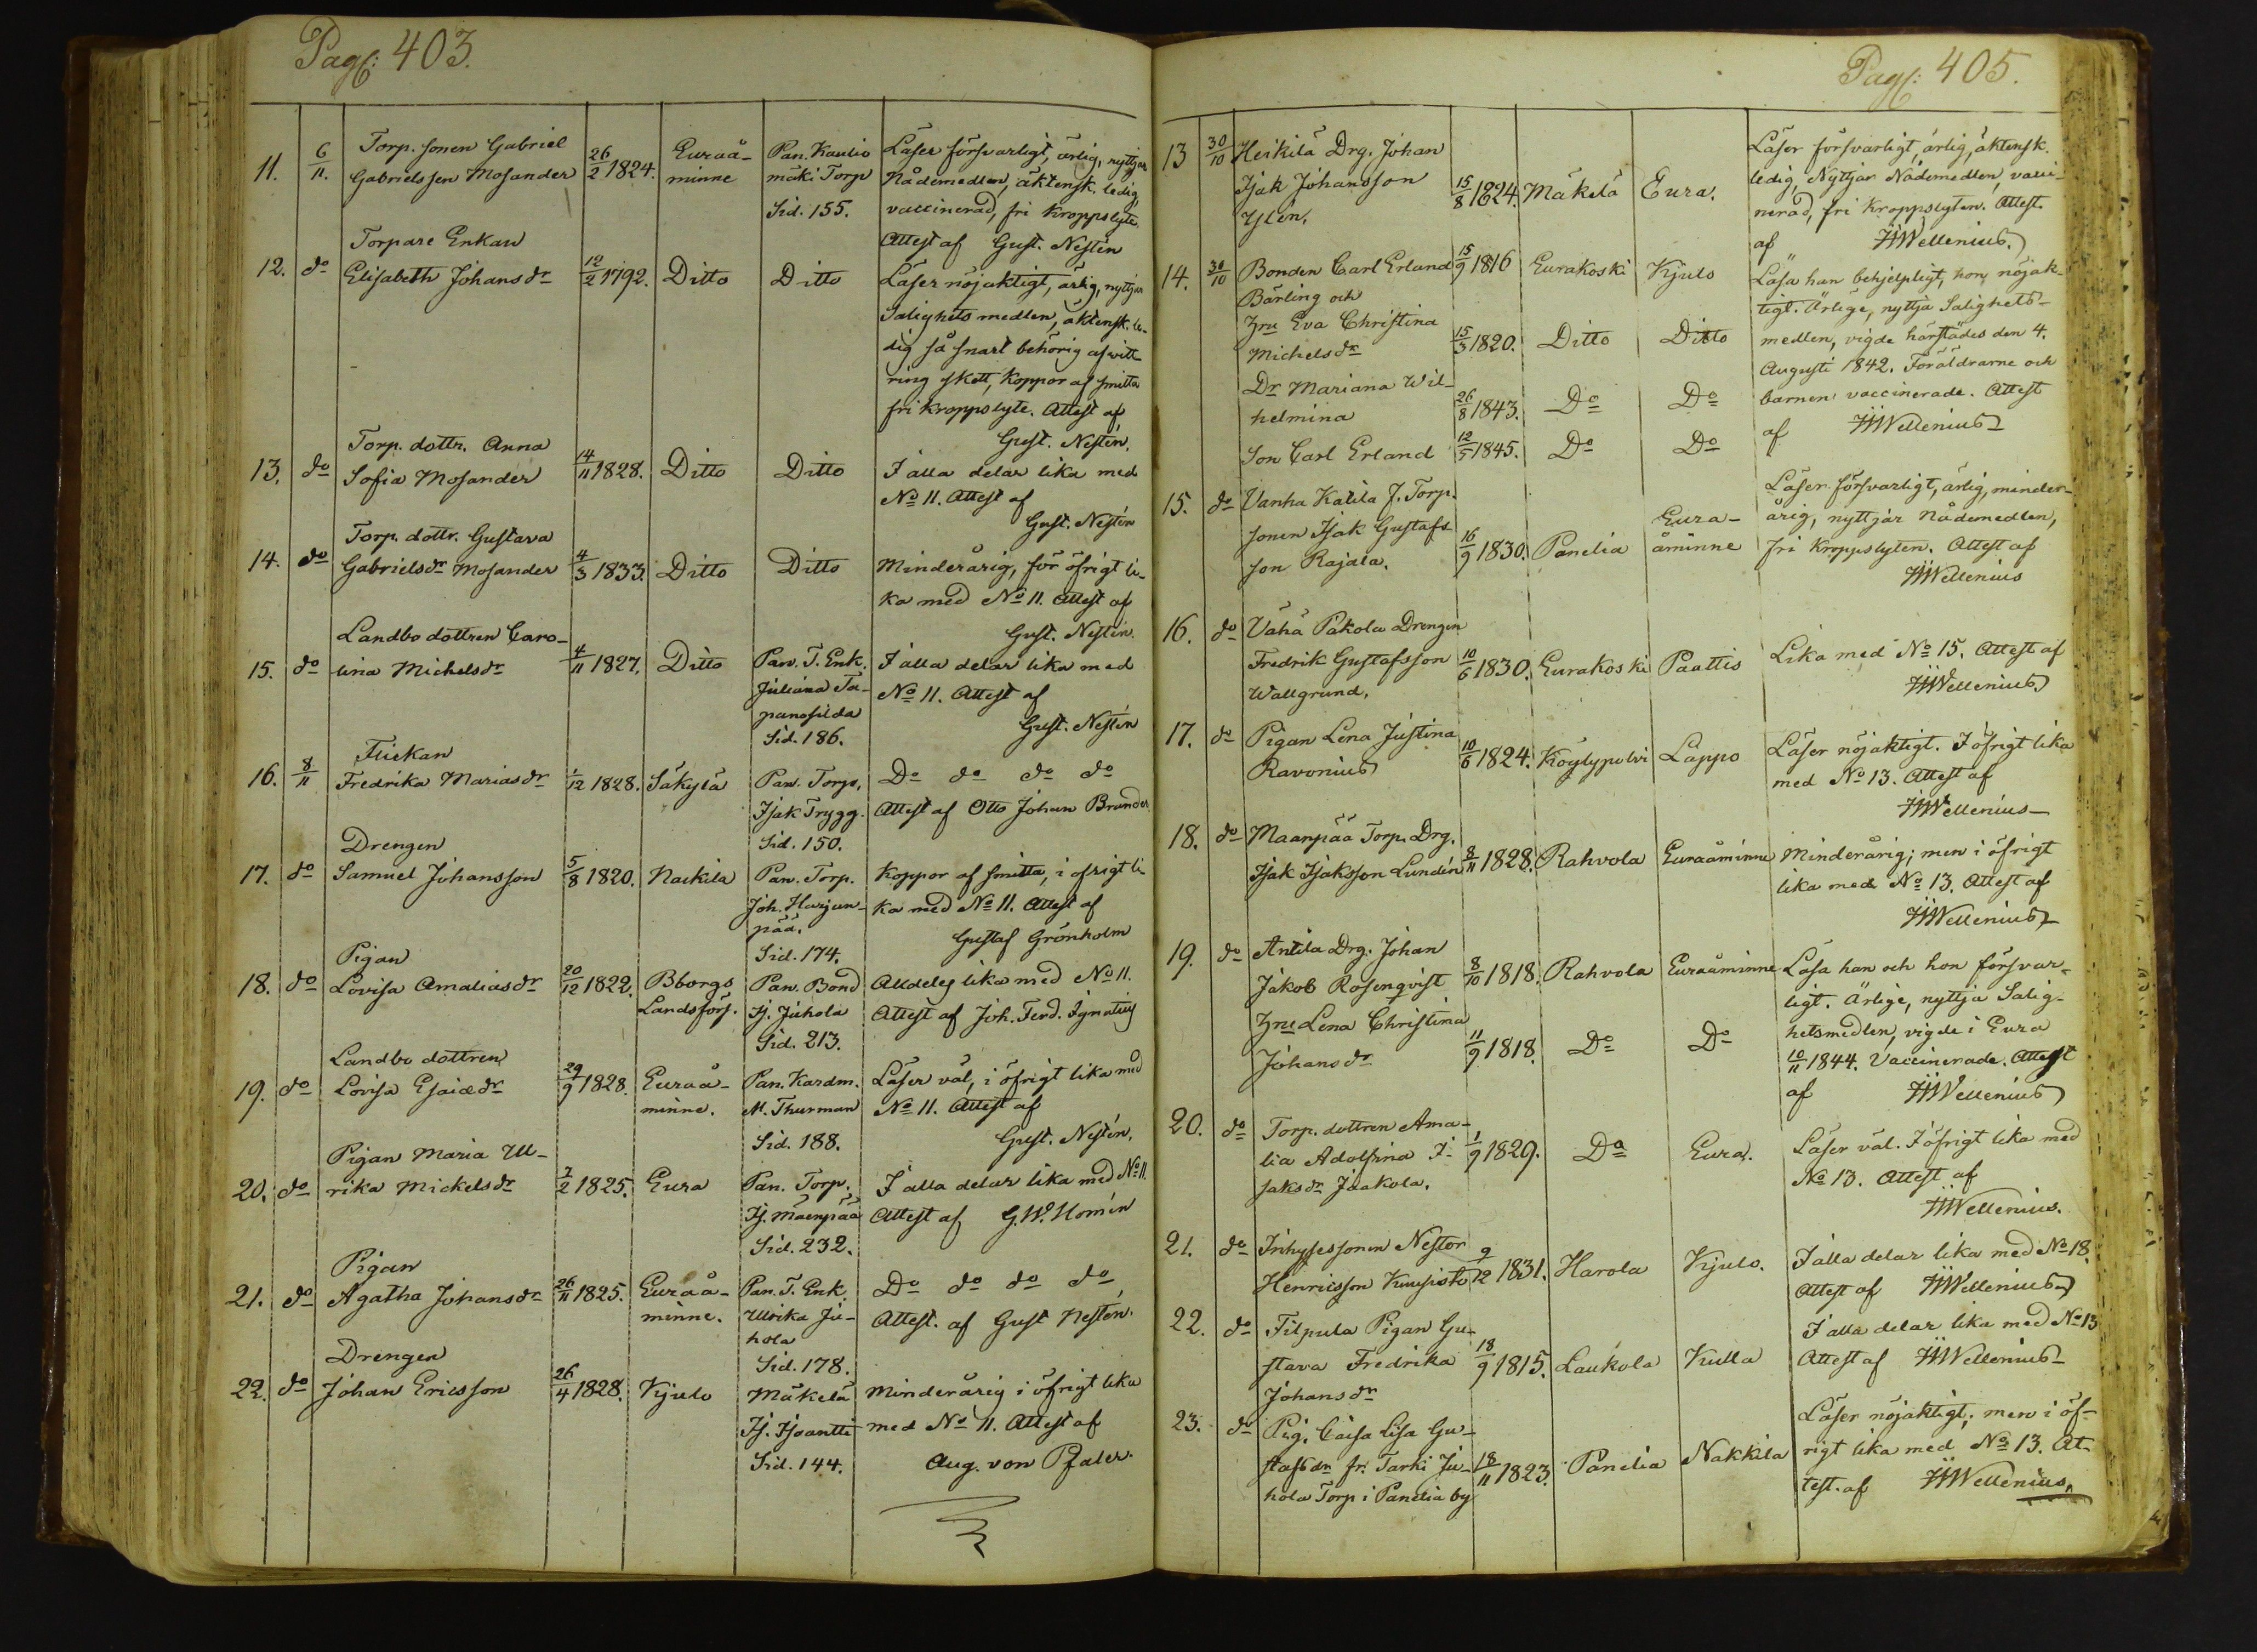 Pag: 403.
11. 6/11. Torp. sonen Gabriel Gabrielsson Mosander 26/2 1824. Euraå-minne Pan. Kaulio mäki Torp Sid. 155. Läser försvarligt, ärlig, nyttjar
Nådemedlen, äktensk. ledig,
vaccinerad, fri kroppslyte
Attest af Gust. Nestén
12. do Torpare Enkan Elisabeth Johansdr 12/2 1792. Ditto Ditto Läser nöjaktigt, ärlig, nyttjar
Salighets medlen, äktensk. le-
dig så snart behörig afwitt-
ring skett, Koppor af smitta
fri kroppslyte. Attest af
Gust. Nestén.
13. do Torp. dottr. Anna Sofia Mosander 14/11 1828. Ditto Ditto I alla delar lika med
No 11. Attest af
Gust. Nestén
14. do Torp. dottr. Gustava Gabrielsdr Mosander 4/3 1833. Ditto Ditto Minderårig, för öfrigt li-
ka med No 11. Attest af
Gust. Nestén.
15. do Landbo dottren Caro-lina Michelsdr 4/11 1827. Ditto Pan. T. Enk. Juliana Ta-panosilda Sid. 186. I alla delar lika med
No 11. Attest af
Gust. Nestén
16. 8/11 Flickan Fredrika Mariasdr 1/12 1828. Säkylä Pan. Torp. Isak Trygg. Sid. 150. Do do do do
Attest af Otto Johan Brander
17. do Drengen Samuel Johansson 5/8 1820. Nackila Pan. Torp. Joh. Harjun-pää. Sid. 174. Koppor af smitta, i öfrigt li-
ka med No 11. Attest af
Gustaf Grönholm
18. do Pigan Lovisa Amaliasdr 20/12 1822. Bborgs Landsförs. Pan. Bond Is. Juhola Sid. 213. Alldeles lika med No 11.
Attest af Joh. Ferd. Ignatius
19. do Landbo dottren Lovisa Esaiædr 29/9 1828. Euraå-minne. Pan. Kardm. M. Thurman Sid. 188. Läser väl, i öfrigt lika med
No 11. Attest af
Gust. Nestén.
20. do Pigan Maria Ul-rika Mickelsdr 7/2 1825. Eura Pan. Torp. Is. Mäenpää Sid. 232. I alla delar lika med No 11.
Attest af G. W. Homén
21. do Pigan Agatha Johansdr 26/11 1825. Euraå-minne. Pan. T. Enk. Ulrika Ju-hola Sid. 178. Do do do do,
Attest. af Gust Nestén.
22. do Drengen Johan Ericsson 26/4 1828. Kjulo Mäkelä Is. Isoantti Sid. 144. Minderårig i öfrigt lika
med No 11. Attest af
Aug. von Pfaler.
Pag: 405.
13 30/10 Heikilä Drg. Johan Isak Johansson Ylén. 15/8 1824. Mäkelä Eura. Läser försvarligt, ärlig, äktensk.
ledig, Nyttjar Nådemedlen, vacci-
nerad, fri kroppslyten. Attest.
af Wellenius.
14. 30/10 Bonden Carl Erland Bärling och 15/9 1816 Eurakoski Kjulo Läsa han behjelpligt, hon nöjak-
tigt. Ärlige, nyttja Salighets-
Hru Eva Christina Michelsdr 15/3 1820. Ditto Ditto medlen, vigde härstädes den 4.
Augusti 1842. Föräldrarne och
Dr Mariana Wil-helmina 26/8 1843. Do Do barnen vaccinerade. Attest
Son Carl Erland 12/5 1845. Do Do af Wellenius
15. do Vanha Katila f. Torp. sonen Isak Gustafs-son Rajala. 16/9 1830. Panelia Eura-åminne Läser försvarligt, ärlig, minder-
årig, nyttjar nådemedlen,
fri kroppslyten. Attest af
Wellenius
16. do Vähä Pakola Drengen Fredrik Gustafsson Wallgrund. 10/6 1830. Eurakoski Paattis Lika med No 15. Attest af
Wellenius
17. do Pigan Lena Justina Ravonius 10/6 1824. Köylypolvi Lappo Läser nöjaktigt. I öfrigt lika
med No 13. Attest af
Wellenius
18. do Maanpää Torp. Drg. Isak Isaksson Lundén 8/11 1828. Rahvola Euraåminne Minderårig; men i öfrigt
lika med No 13. Attest af
Wellenius
19. do Antila Drg. Johan Jakob Rosenqvist 8/10 1818. Rahvola Euraåminne Läsa han och hon försvar-
ligt. Ärlige, nyttja Salig-
Hru Lena Christina Johansdr 11/9 1818. Do Do hetsmedlen, vigde i Eura
10/11 1844. Vaccinerade. Attest
af Wellenius
20. do Torp. dottren Ama-lia Adolfina I-saksdr Jaakola. 1/9 1829. Do Eura. Läser väl. I öfrigt lika med
No 13. Attest af
Wellenius.
21. do Inhysessonen Nestor Henricsson Kuusisto 9/12 1831. Harola Kjulo. I alla delar lika med No 18.
Attest af Wellenius
22. do Filpula Pigan Gu-stava Fredrika Johansdr 18/9 1815. Laukola Kulla I alla delar lika med No 13
Attest af Wellenius
23. do Pig. Caisa Lisa Gu-stafsdr fr. Tarki Ju-hola Torp i Panelia by 18/11 1823. Panelia Nakkila Läser nöjaktigt; men i öf-
rigt lika med No 13. At-
test. af Wellenius.